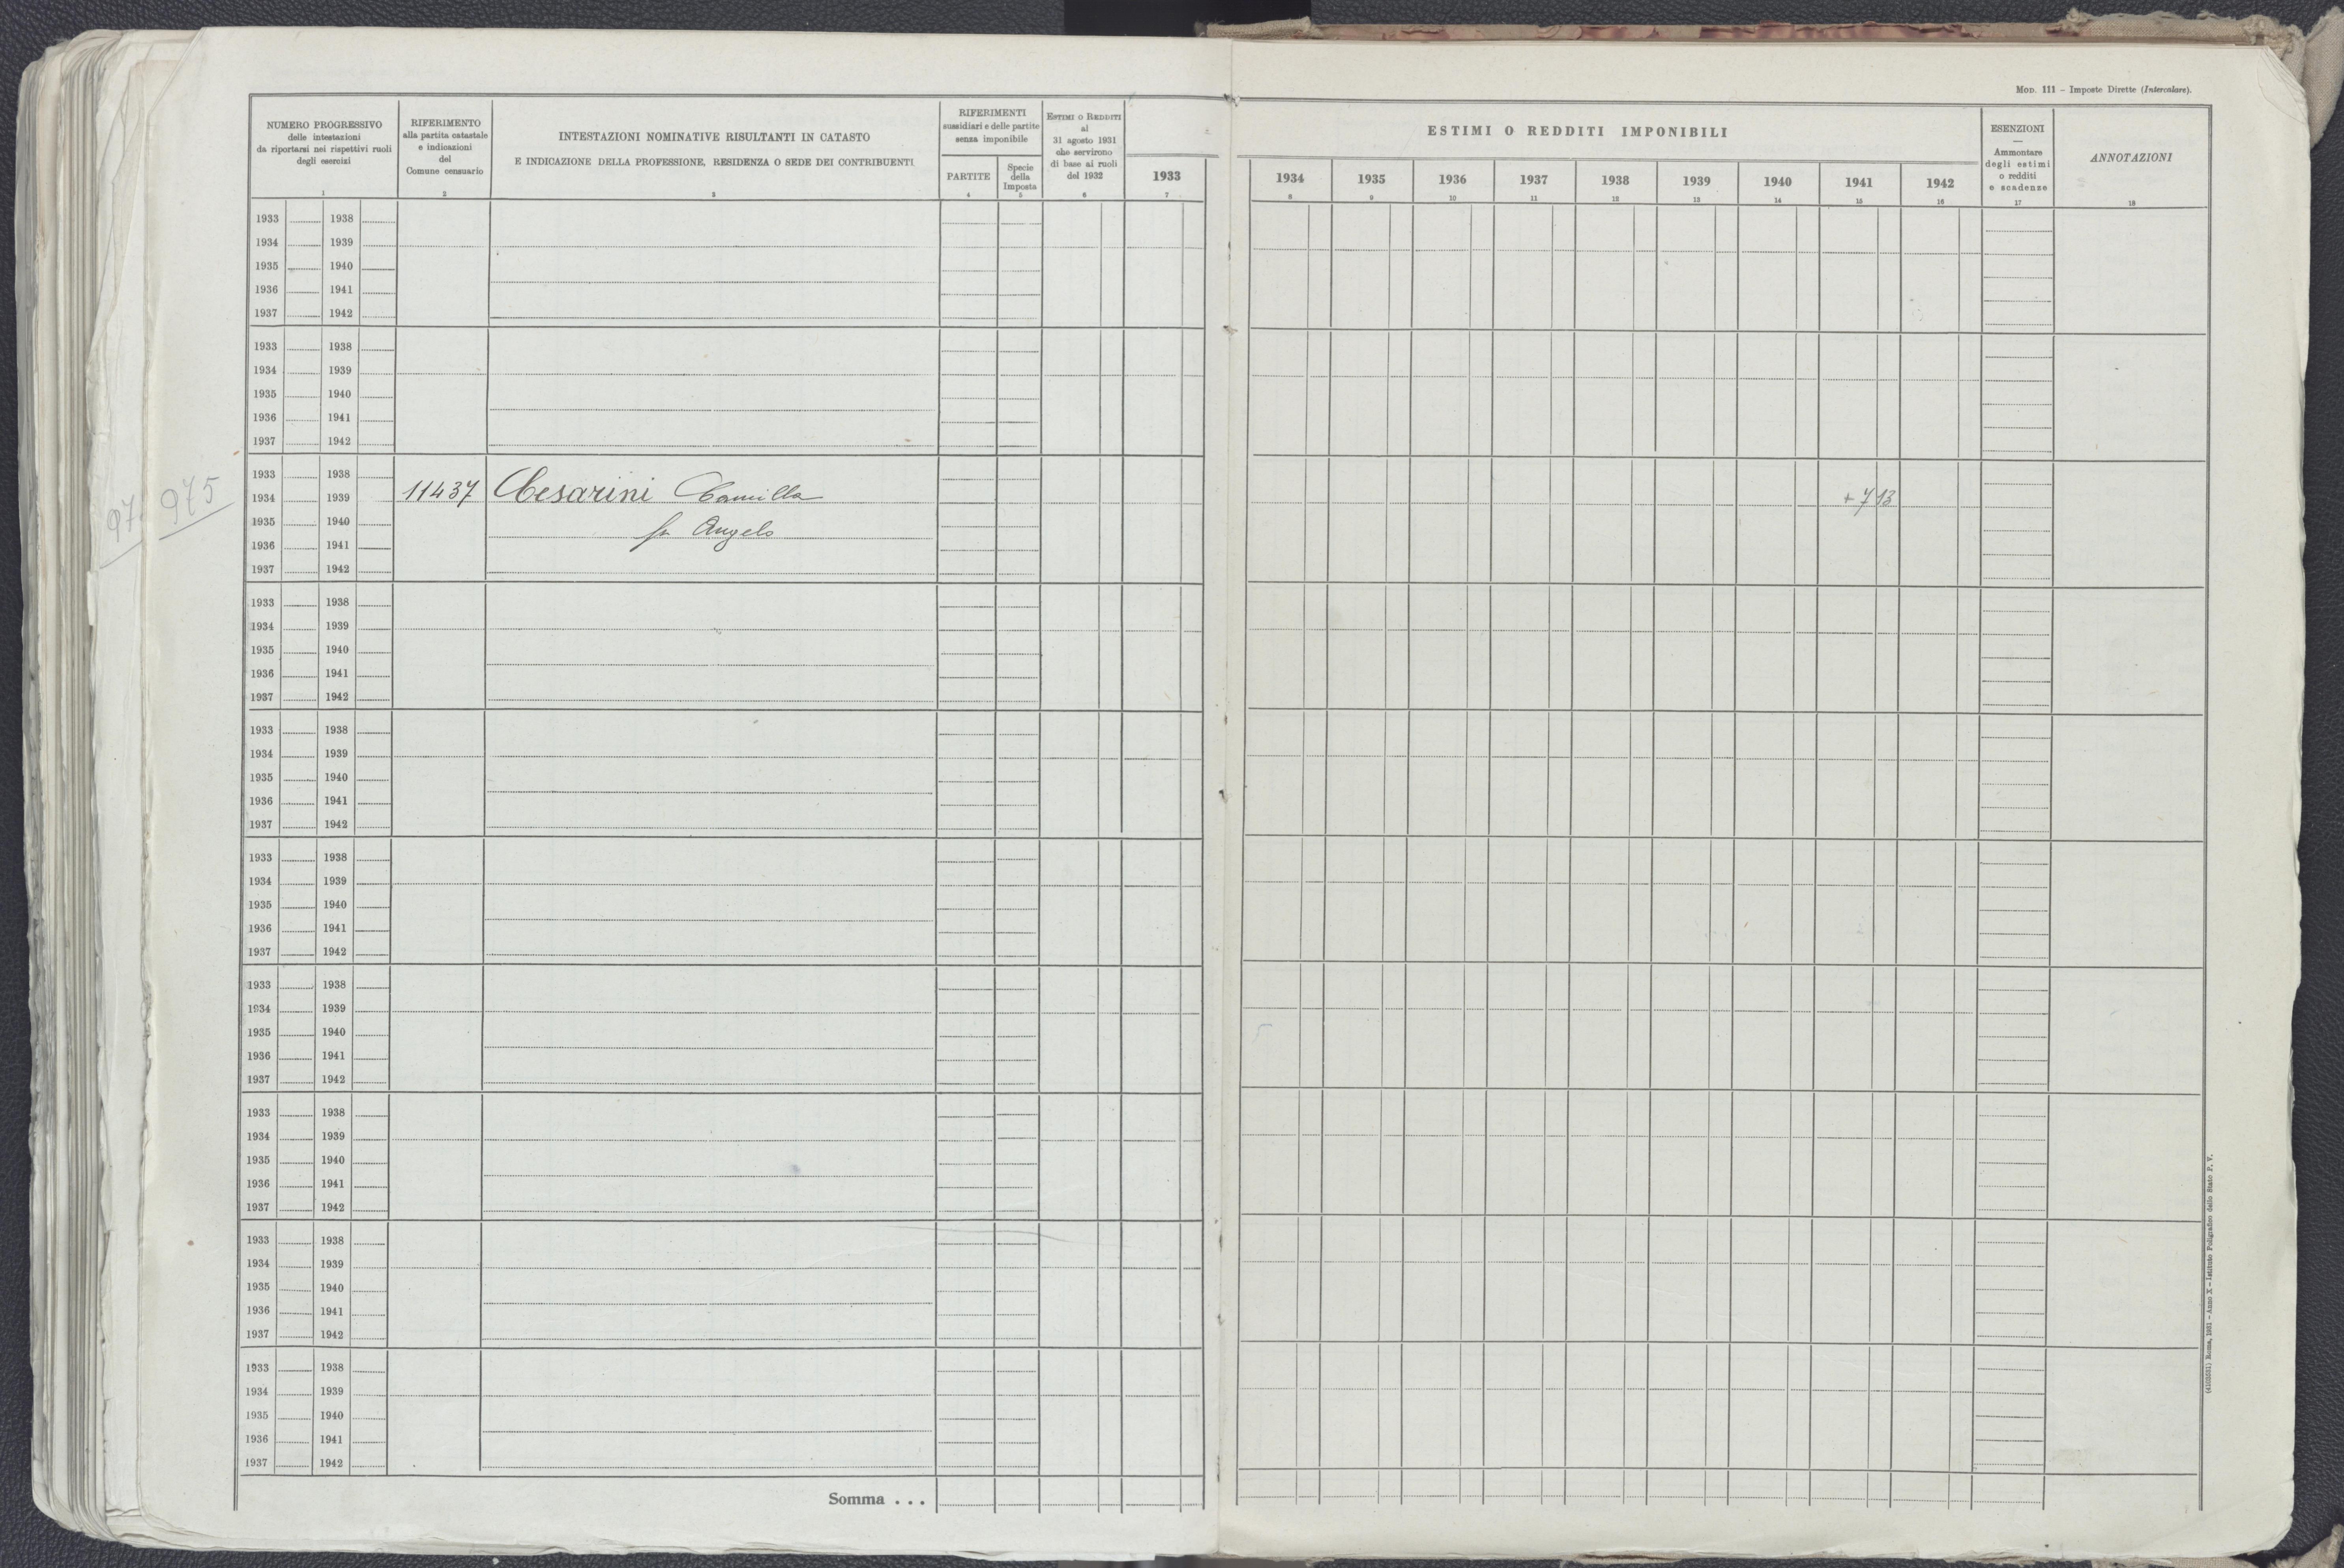 MOD. 111 – Imposte Dirette (Intercalare).
NUMERO PROGRESSIVO
delle intestazioni
da riportarsi nei rispettivi ruoli
degli esercizi
1
RIFERIMENTO
alla partita catastale
e indicazioni
del
Comune censuario
2
INTESTAZIONI NOMINATIVE RISULTANTI IN CATASTO
E INDICAZIONE DELLA PROFESSIONE, RESIDENZA O SEDE DEI CONTRIBUENTI
3
RIFERIMENTI
sussidiari e delle partite
senza imponibile
PARTITE
4
Specie
della
Imposta
5
ESTIMI O REDDITI
al
31 agosto 1931
che servirono
di base ai ruoli
del 1932
6
1933
7
ESTIMI O REDDITI IMPONIBILI
1934 1935 1936 1937 1938 1939 1940 1941 1942
8 9 10 11 12 13 14 15 16
ESENZIONI
—
Ammontare
degli estimi
o redditi
e scadenze
17
ANNOTAZIONI
18
1933 1938
1934 1939
1935 1940
1936 1941
1937 1942
1933 1938
1934 1939
1935 1940
1936 1941
1937 1942
97 975
1933 1938
1934 1939 11437 Cesarini Camilla + 713
1935 1940 fu Angelo
1936 1941
1937 1942
1933 1938
1934 1939
1935 1940
1936 1941
1937 1942
1933 1938
1934 1939
1935 1940
1936 1941
1937 1942
1933 1938
1934 1939
1935 1940
1936 1941
1937 1942
1933 1938
1934 1939
1935 1940
1936 1941
1937 1942
1933 1938
1934 1939
1935 1940
1936 1941
1937 1942
1933 1938
1934 1939
1935 1940
1936 1941
1937 1942
1933 1938
1934 1939
1935 1940
1936 1941
1937 1942
Somma . . .
Roma, 1931 – Anno X – Istituto Poligrafico dello Stato P. V.